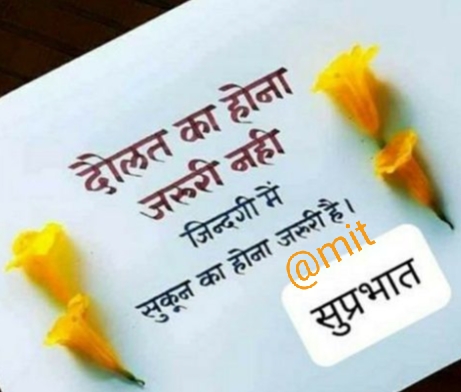 दौलत का होना
जरुरी नही
जिन्दगी में
सुकून का होना जरुरी है।
@mit
सुप्रभात